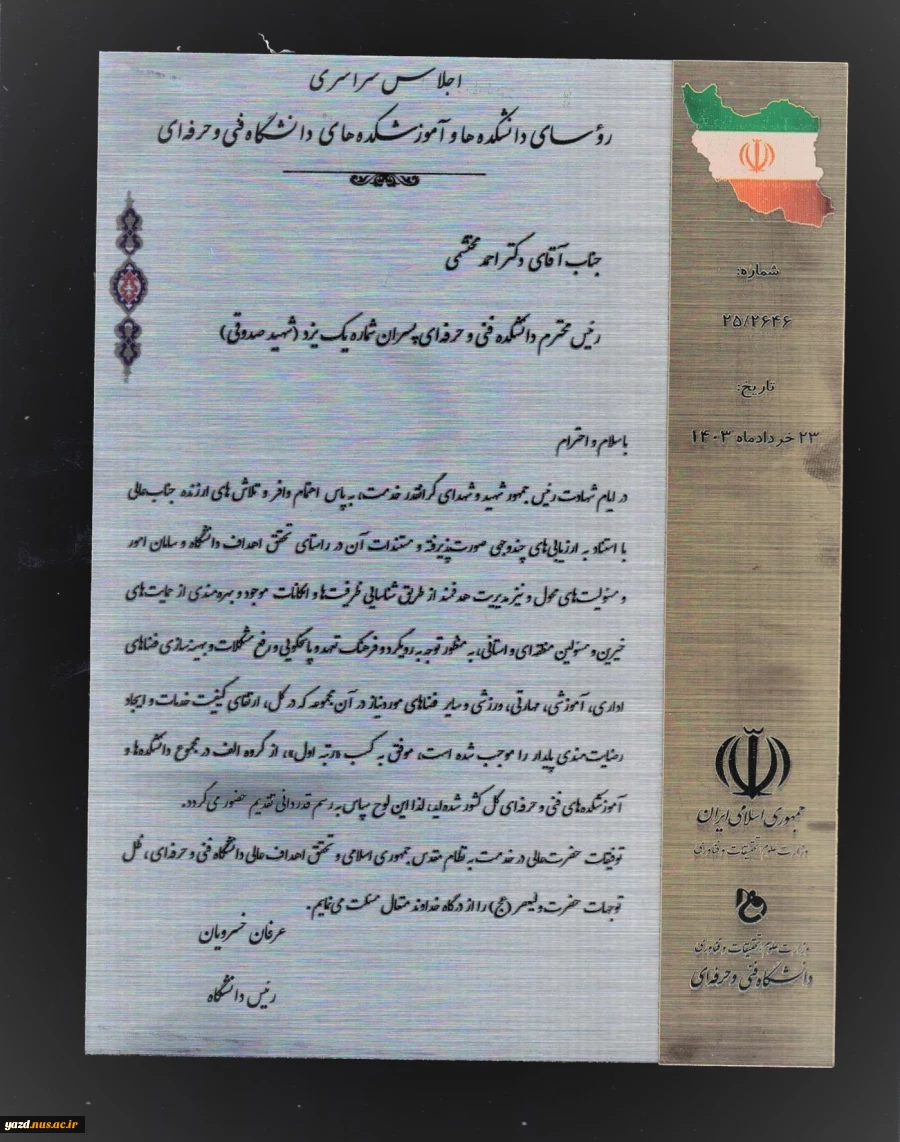 اجلاس سراسری
رؤسای دانشکده ها و آموزشکده های دانشگاه فنی و حرفه‌ای
جناب آقای دکتر احمد محتشمی
رئیس محترم دانشکده فنی و حرفه‌ای پسران شماره یک یزد (شهید صدوقی)
باسلام و احترام
در ایام شهادت رئیس جمهور شهید و شهدای گرانقدر خدمت، به پاس اهتمام وافر و تلاش های ارزنده جناب‌عالی
با استناد به ارزیابی‌های چندوجهی صورت‌پذیرفته و مستندات آن در راستای تحقق اهداف دانشگاه و سامان امور
و مسئولیت‌های محول و نیز مدیریت هدفمند از طریق شناسایی ظرفیت‌ها و امکانات موجود و بهره‌مندی از حمایت‌های
خیرین و مسئولین منطقه‌ای و استانی، به منظور توجه به رویکرد و فرهنگ تعهد و پاسخگویی و رفع مشکلات و بهینه‌سازی فضاهای
اداری، آموزشی، مهارتی، ورزشی و سایر فضاهای موردنیاز در آن مجموعه که در کل، ارتقای کیفیت خدمات و ایجاد
رضایت‌مندی پایدار را موجب شده است، موفق به کسب «رتبه اول»، از گروه الف در مجموع دانشکده‌ها و
آموزشکده‌های فنی و حرفه‌ای کل کشور شده‌اید، لذا این لوح سپاس به رسم قدردانی تقدیم حضور می‌گردد.
توفیقات حضرت‌عالی در خدمت به نظام مقدس جمهوری اسلامی و تحقق اهداف عالی دانشگاه فنی و حرفه‌ای، ظل
توجهات حضرت ولیعصر (عج) را از درگاه خداوند متعال مسئلت می‌نمایم.
عرفان خسرویان
رئیس دانشگاه
شماره:
۲۵/۲۶۴۶
تاریخ:
۲۳ خردادماه ۱۴۰۳
جمهوری اسلامی ایران
وزارت علوم، تحقیقات و فناوری
وزارت علوم، تحقیقات و فناوری
دانشگاه فنی و حرفه‌ای
yazd.nus.ac.ir